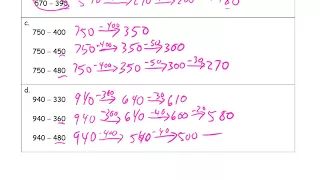 670 – 390
c.
750 – 400 750 -400→ 350
750 – 450 750 -400→ 350 -50→ 300
750 – 480 750 -400→ 350 -50→ 300 -30→ 270
d.
940 – 330 940 -300→ 640 -30→ 610
940 – 360 940 -300→ 640 -40→ 600 -20→ 580
940 – 480 940 -400→ 540 -40→ 500